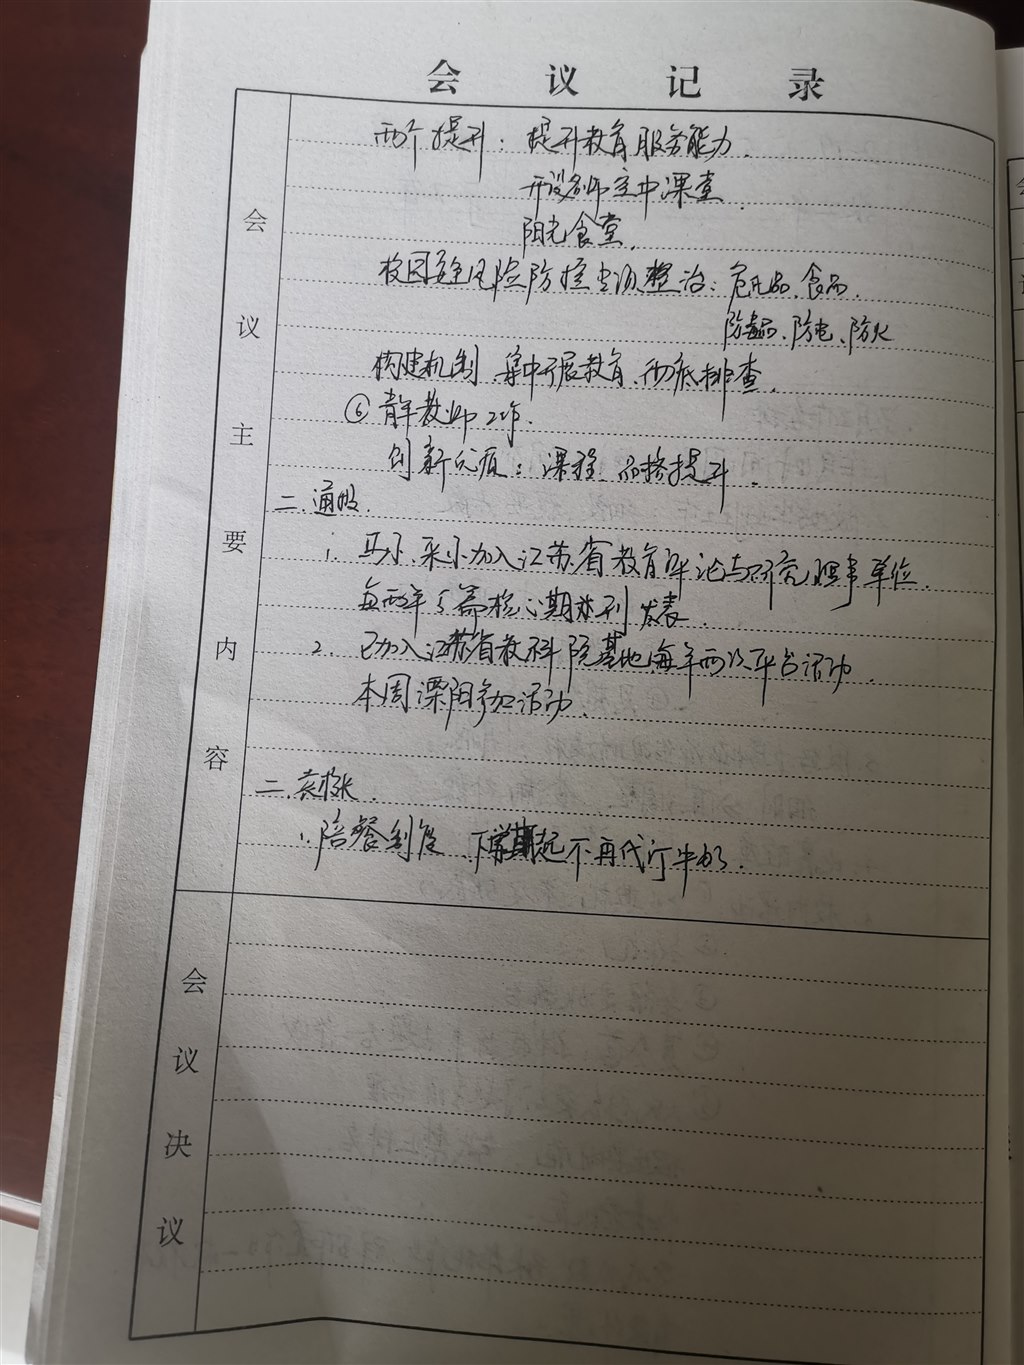 会议记录
会议主要内容
两个提升：提升教育服务能力.
开设名师空中课堂.
阳光食堂.
校园安全风险防控专项整治：危化品、食品、
防毒品、防电、防火
构建机制、集中开展教育、彻底排查.
⑥ 青年教师工作.
创新元痕：课程品格提升.
二. 通报.
1. 马小、采小加入江苏省教育评论与研究理事单位.
每两年5篇核心期刊发表.
2. 已加入江苏省教科院基地每年两次平台活动.
本周溧阳参加活动.
二. 袁校长.
1. 陪餐制度 下学期起不再代订牛奶.
会议决议